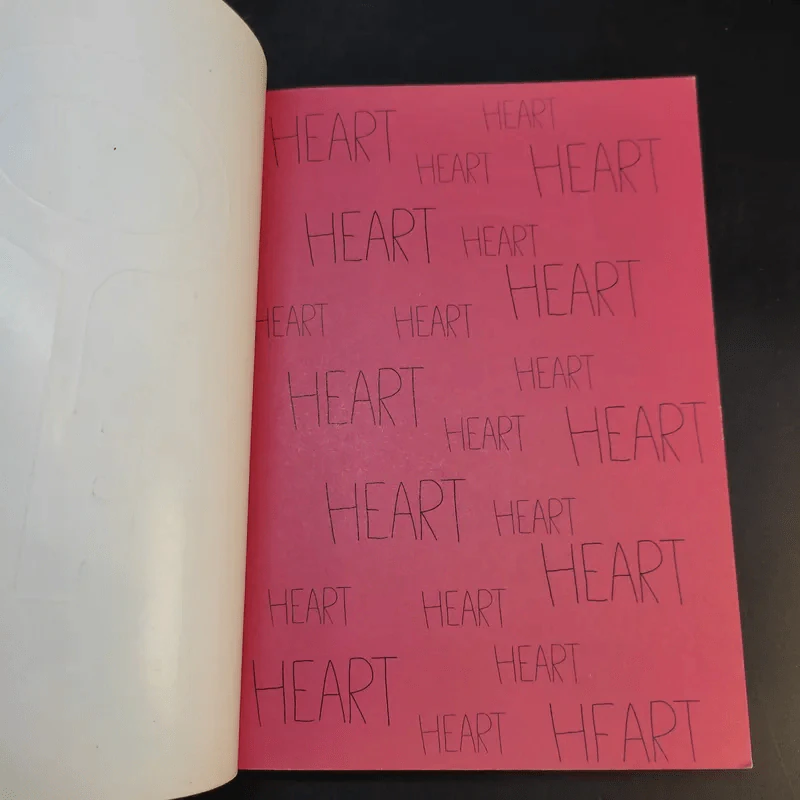 HEART HEART
HEART HEART
HEART HEART
HEART
HEART HEART
HEART HEART
HEART HEART
HEART HEART
HEART
HEART HEART
HEART HEART
HEART HFART